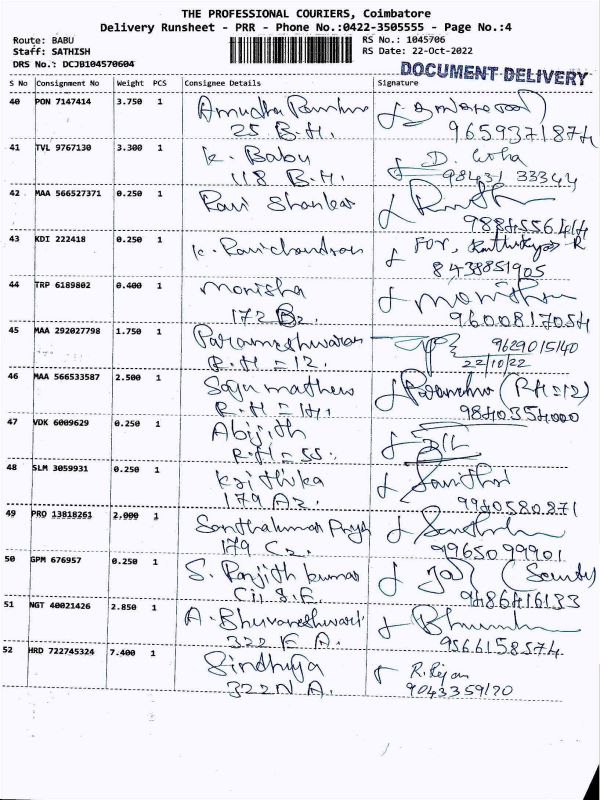 THE PROFESSIONAL COURIERS, Coimbatore
Delivery Runsheet - PRR - Phone No.:0422-3505555 - Page No.:4
Route: BABU
RS No.: 1045706
Staff: SATHISH
RS Date: 22-Oct-2022
DRS No.: DCJB104570604
DOCUMENT DELIVERY
S No Consignment No Weight PCS Consignee Details Signature
40 PON 7147414 3.750 1
25 B.H. 9659371874
41 TVL 9767130 3.300 1 K. Babu D.
118 B.H. 98431 33344
42 MAA 566527371 0.250 1 Ravi Shankar
43 KDI 222418 0.250 1 K. Ravichandran FOR,
8438851905
44 TRP 6189802 0.400 1 Monisha
172 B2. 9600817054
45 MAA 292027798 1.750 1 Parameshwaran 9629015140
R.H=12. 22/10/22
46 MAA 566533587 2.500 1 Saju mathew (RH=12)
R.H=14. 9840354000
47 VDK 6009629 0.250 1 Abijith
R.H=55.
48 SLM 3059931 0.250 1 Krithika
179 A2. 9940580871
49 PRO 13818261 2.000 1 Santhakumar
179 C2. 9965099901
50 GPM 676957 0.250 1 S. Ranjith kumar
9486416133
51 NGT 40021426 2.850 1 A. Bhuvaneshwari
322 K A. 9566158574
52 HRD 722745324 7.400 1 Sindhuja
322 N A. 9043359120